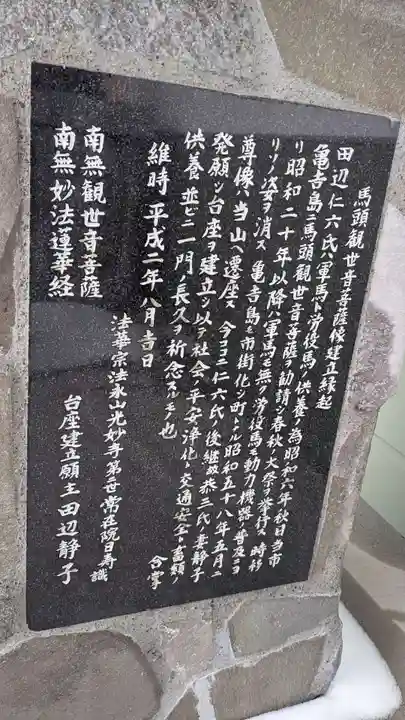 馬頭観世音菩薩像建立縁起
田辺仁六氏ハ軍馬ト労役馬ノ供養ノ為昭和六年秋日当市
亀吉島ニ馬頭観世音菩薩ヲ勧請シ春秋ノ大祭ヲ挙行ス 時移
リ昭和二十年以降ハ軍馬ハ無ク労役馬モ動力機器ノ普及ニヨ
リソノ姿ヲ消ス 亀吉島モ市街化シ町トナル昭和五十八年五月ニ
尊像ハ当山ヘ遷座ス 今ココニ仁六氏ノ後継故恭三氏ノ妻静子
発願シ台座ヲ建立シ以テ社会ノ平安浄化ト交通安全ト畜類ノ
供養 並ビニ一門ノ長久ヲ祈念スルモノ也 合掌
維時 平成二年八月吉日
法華宗法永山光妙寺第二世常在院日寿 識
南無観世音菩薩
南無妙法蓮華経
台座建立願主田辺静子